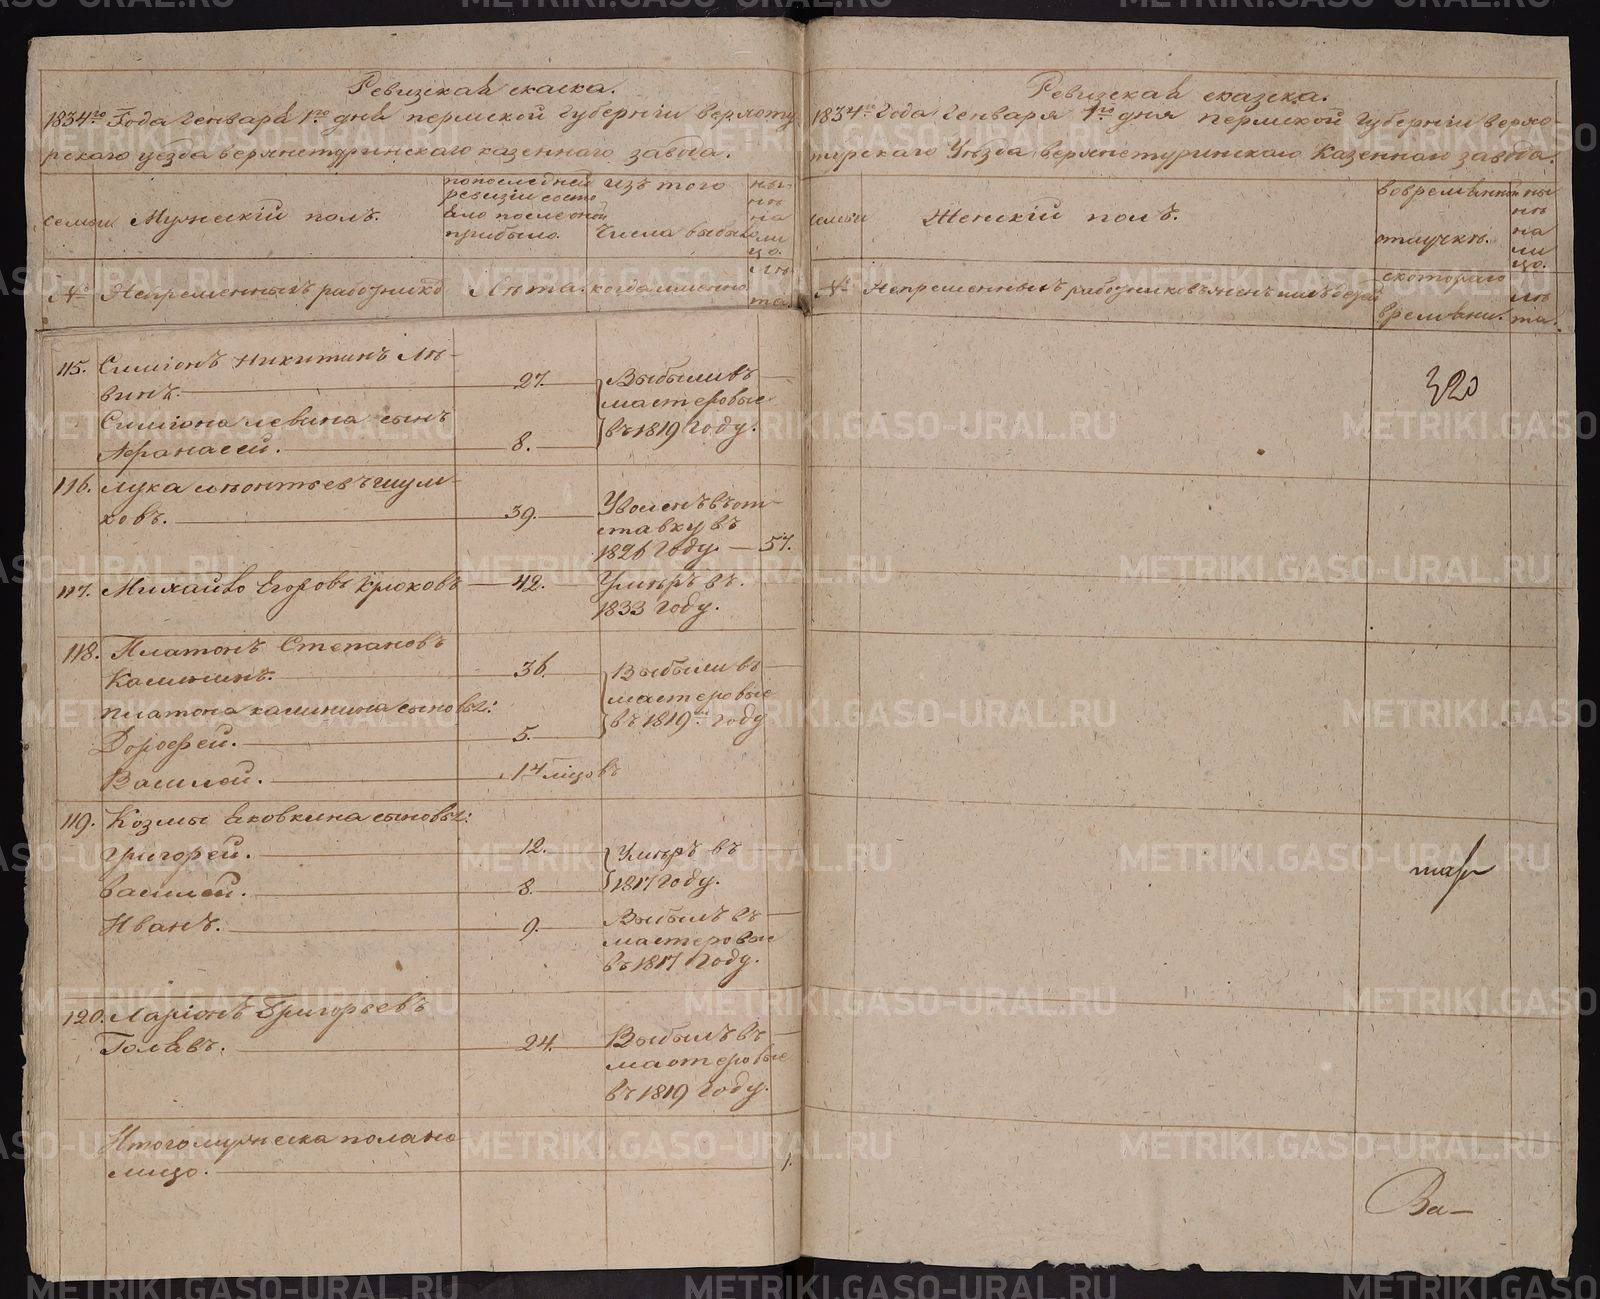 Ревизская скаска.
1834го Года Генваря 1го дня пермской Губернiи верхоту
рскаго уезда верхнетуринскаго казеннаго завода.
семьи
Мужескiй полъ.
попоследней
ревизiи состо
яло после оной
прибыло.
изъ того
числа выбыло
ны-
нѣ
на
ли
цо.
№
Непременныхъ работнико
Лѣта.
когда имянно
лѣ
та.
115. Симiонъ Никитинъ Ле-
винъ. 27. Выбыли въ
мастеровые
Симiона левина сынъ
въ 1819 Году.
Афанасей. 8.
116. Лука леонтьевъ шули-
ховъ. 39. Уволенъ въ от-
ставку въ
1826 Году. — 57.
117. Михайло Егоровъ Крюковъ — 42. Умѣръ въ
1833 Году.
118. Платонъ Степановъ
Калининъ. 36. Выбыли въ
мастеровые
платона калинина сыновья:
въ 1819м году
Дорофей. 5.
Василей. 1
119. Козмы Яковкина сыновья:
Григорей. 12. Умѣръ въ
1817 Году.
василей. 8.
Иванъ. 9. Выбылъ въ
мастеровые
въ 1817 Году.
120. Ларiонъ Григорьевъ
Голявъ. 24. Выбылъ въ
мастеровые
въ 1819 Году.
Итого мужеска пола на
лицо. 1.
Ревизская сказска.
1834го Года Генваря 1го дня пермской Губернiи верхо-
турскаго Уѣзда верхнетуринскаго Казеннаго завода.
семьи
Женскiй полъ.
вовременной
отлучкѣ.
ны
нѣ
на
ли
цо.
№
Непременныхъ работниковъ
скотораго
времяни.
лѣ
та.
320
Ва-
METRIKI.GASO-URAL.RU